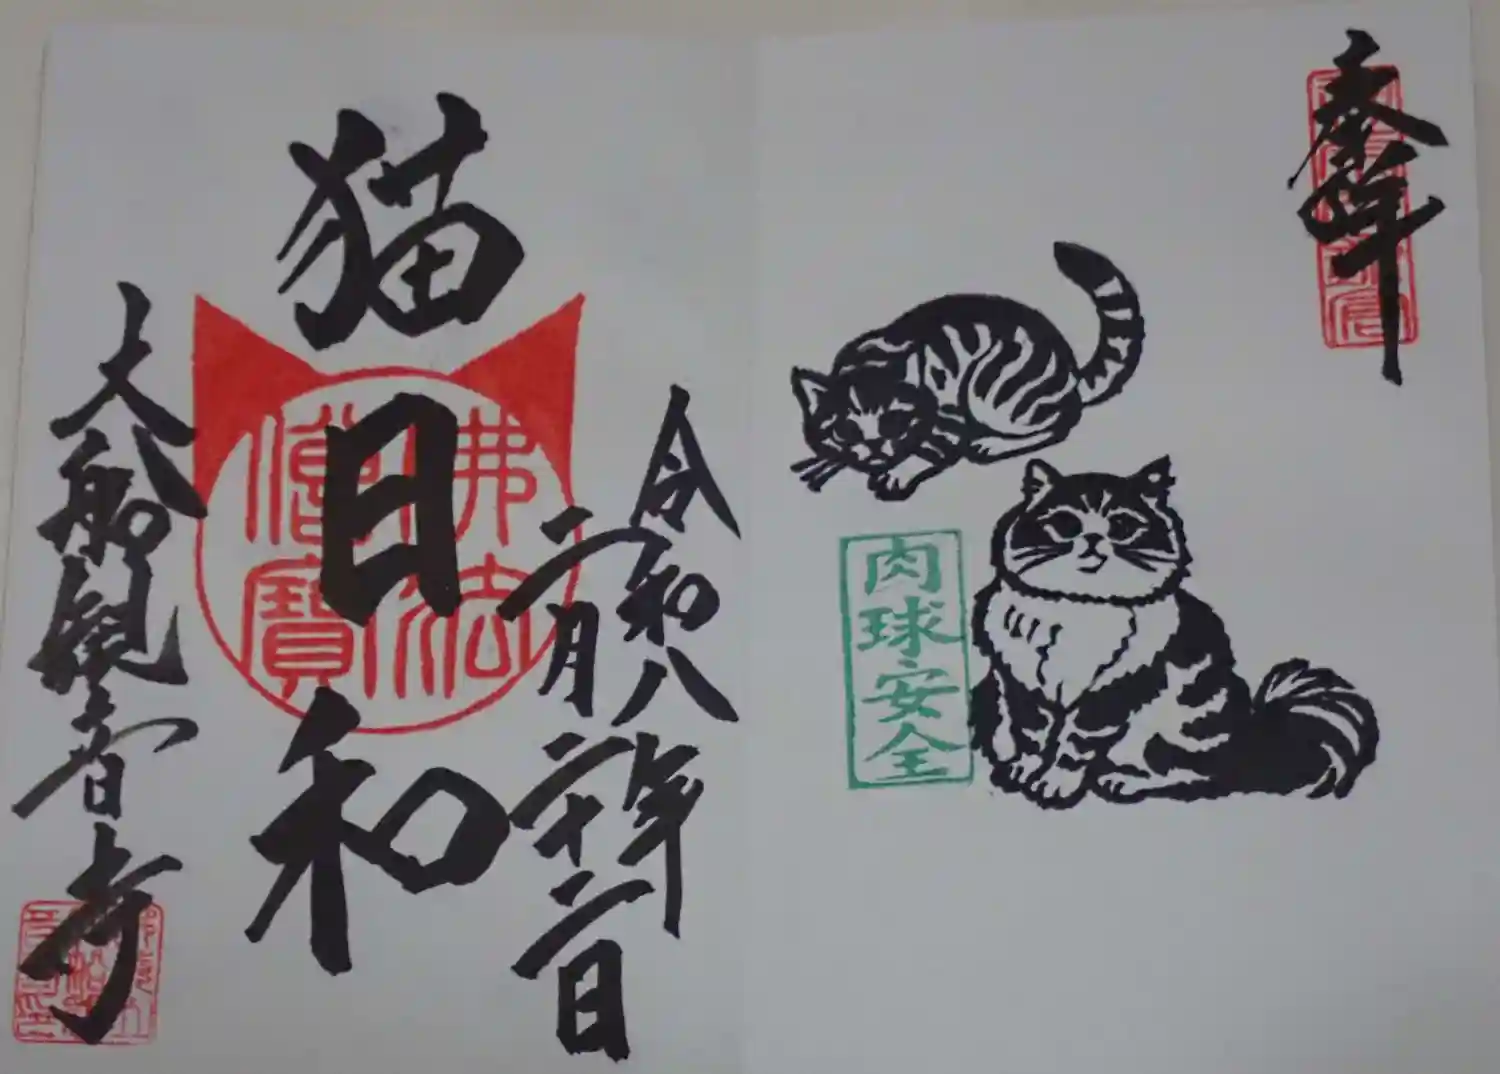 奉拝
肉球安全
令和八年
二月二十二日
猫日和
佛法
僧寳
大船観音寺